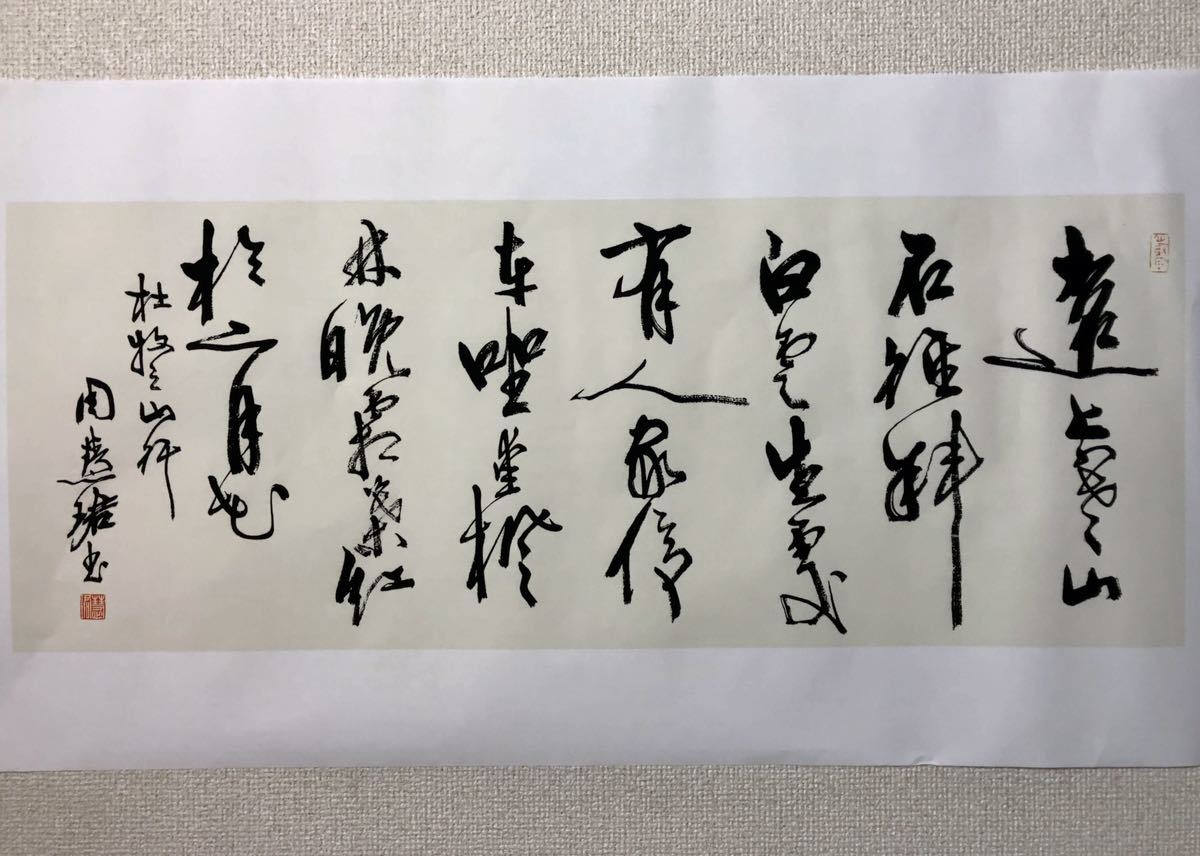 遠上寒山
石徑斜
白雲生處
有人家停
車坐愛楓
林晚霜葉紅
於二月花
杜牧之山行
周慧珺書